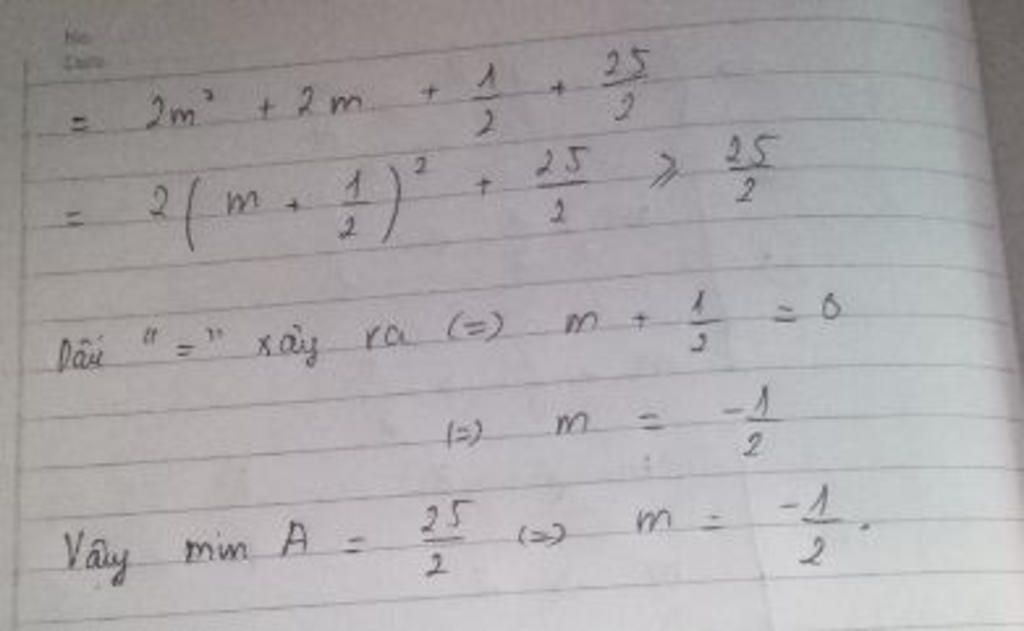 No.
Date
= 2m² + 2m + 1/2 + 25/2
= 2(m + 1/2)² + 25/2 ⩾ 25/2
Dấu "=" xảy ra (=) m + 1/2 = 0
(=) m = -1/2
Vậy min A = 25/2 (=) m = -1/2.